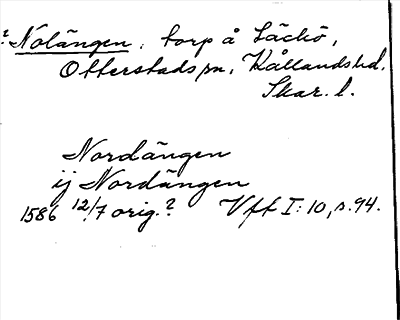 ? Nolängen, torp å Läckö,
Otterstads sn, Kållands hd.
Skar. l.
Nordängen
ij Nordängen
1586 12/7 orig.? Vft I: 10, s. 94.